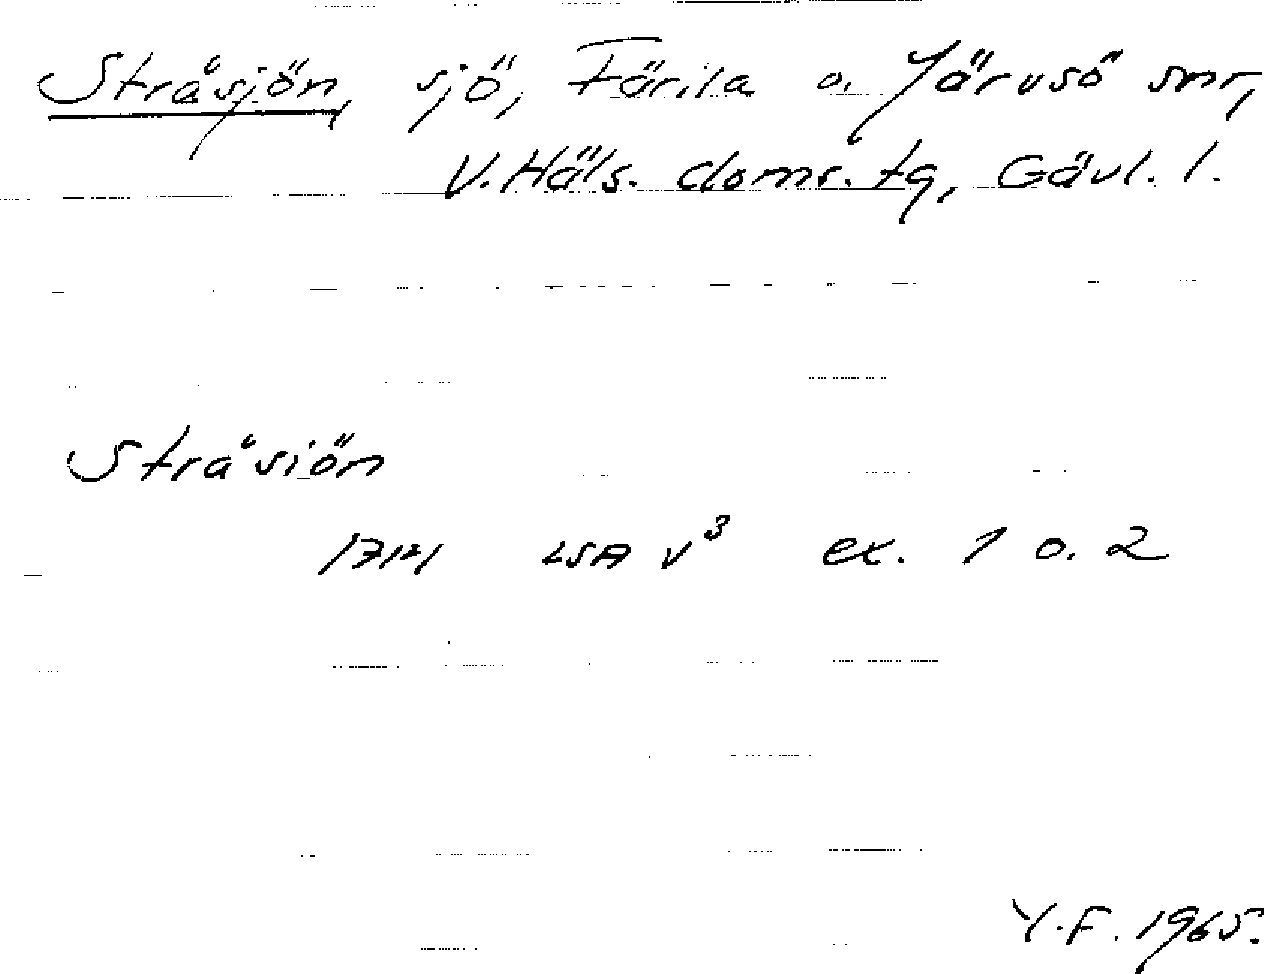 Stråsjön, sjö, Färila o. Järvsö snr,
V. Häls. doms. tg, Gävl. l.
Stråsiön
LSA V³ ex. 1 o. 2
Y.F. 1965.